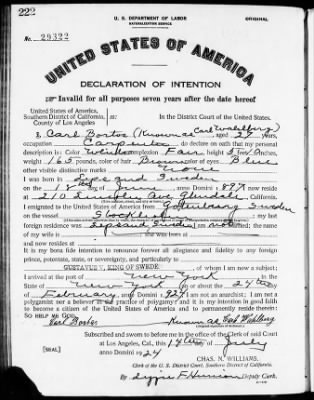 222
U. S. DEPARTMENT OF LABOR
NATURALIZATION SERVICE
ORIGINAL
No. 29322
UNITED STATES OF AMERICA
DECLARATION OF INTENTION
Invalid for all purposes seven years after the date hereof
United States of America,
Southern District of California, ss:
County of Los Angeles
In the District Court of the United States.
I, Carl Bortos (Known as Carl Wahlberg) aged 27 years,
occupation Carpenter, do declare on oath that my personal
description is: Color White, complexion Fair, height 5 feet inches,
weight 165 pounds, color of hair Brown, color of eyes Blue
other visible distinctive marks none
I was born in Sweden
on the 18 day of June, anno Domini 1897; now reside
at 210 Ave Glendale, California.
I emigrated to the United States of America from Gothenburg Sweden
on the vessel Stockholm; my last
foreign residence was Sweden; I am not married; the name
of my wife is ; she was born at
and now resides at
It is my bona fide intention to renounce forever all allegiance and fidelity to any foreign
prince, potentate, state, or sovereignty, and particularly to
GUSTAVUS V, KING OF SWEDEN, of whom I am now a subject;
I arrived at the port of New York, in the
State of New York, on or about the 24th day
of February, anno Domini 1924; I am not an anarchist; I am not a
polygamist nor a believer in the practice of polygamy; and it is my intention in good faith
to become a citizen of the United States of America and to permanently reside therein:
SO HELP ME GOD.
Carl Bortos Known as Carl Wahlberg
Subscribed and sworn to before me in the office of the Clerk of said Court
at Los Angeles, Cal., this 14th day of July
[SEAL] anno Domini 1924
CHAS. N. WILLIAMS,
Clerk of the U. S. District Court, Southern District of California.
By Deputy Clerk.